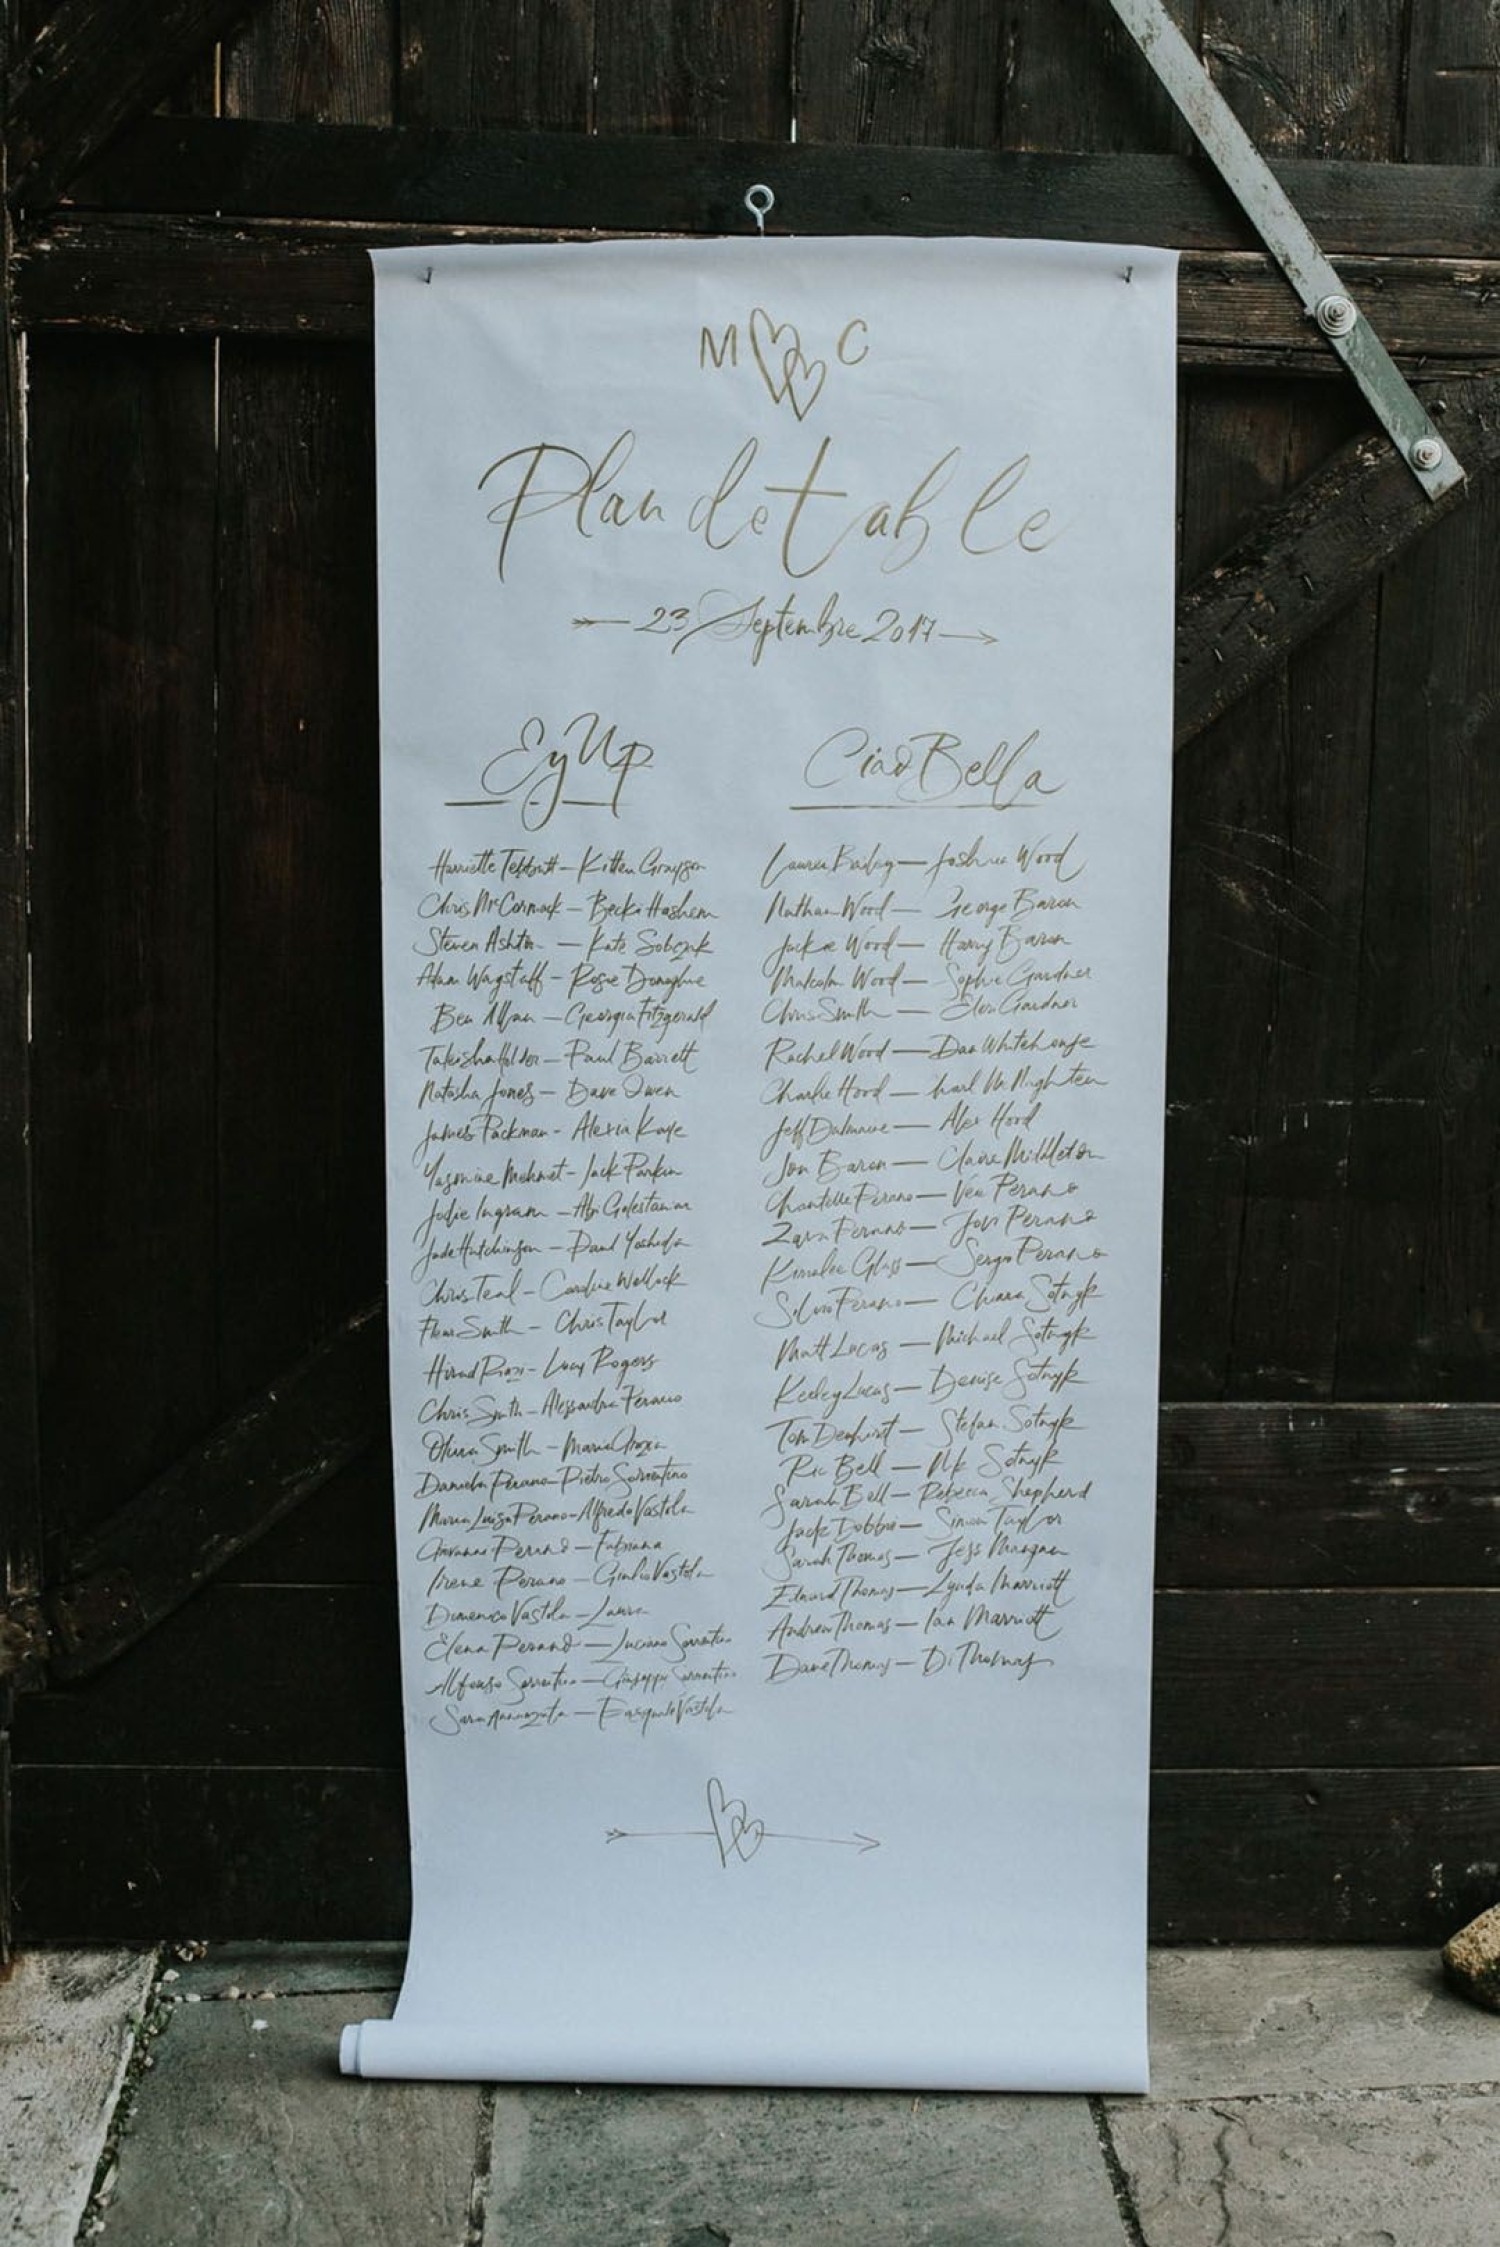 M C
Plan de table
23 Septembre 2017
Ey Up
Harriette Tebbutt — Kitten Grayson
Chris McCormack — Becki Hashem
Steven Ashton — Kate Sobczyk
Adam Wagstaff - Rosie Donoghue
Ben Allan — Georgia Fitzgerald
Takeisha Holder — Paul Barrett
Natasha Jones — Dave Owen
James Packman - Alexia Kaye
Yasmine Mehmet - Jack Parkin
Jodie Ingram — Abi
Jade Hutchinson —
Chris Teal — Caroline
Fleur Smith — Chris Taylor
Lucy Rogers
Chris Smith — Alessandra Perano
Olivia Smith — Maria
Daniela Perano — Pietro Sorrentino
Maria Luigia Perano — Alfredo Vastola
Giovanni Perano — Fabiana
Irene Perano — Giulio Vastola
Domenico Vastola — Laura
Elena Perano — Luciano Sorrentino
Alfonso Sorrentino — Giuseppe Sorrentino
Sara Annunziata — Pasquale Vastola
Ciao Bella
Lauren Bailey — Joshua Wood
Nathan Wood — George Baron
Jackie Wood — Harry Baron
Malcolm Wood — Sophie Gardner
Chris Smith — Gardner
Rachel Wood — Dan Whitehouse
Charlie Hood — Karl
Jeff — Alex Hood
Jon Baron — Claire Middleton
Chantelle Perano — Perano
Zara Perano — Jovi Perano
Glass — Sergio Perano
Silvio Perano — Chiara Sotnyk
Matt Lucas — Michael Sotnyk
Keeley Lucas — Denise Sotnyk
Tom Denhirst — Stefan Sotnyk
Ric Bell — Nik Sotnyk
Sarah Bell — Rebecca Shepherd
Jack Dobbie — Simon Taylor
Sarah Thomas — Jess Mangan
Edward Thomas — Lynda Marriott
Andrew Thomas — Ian Marriott
Dave Thomas — Di Thomas